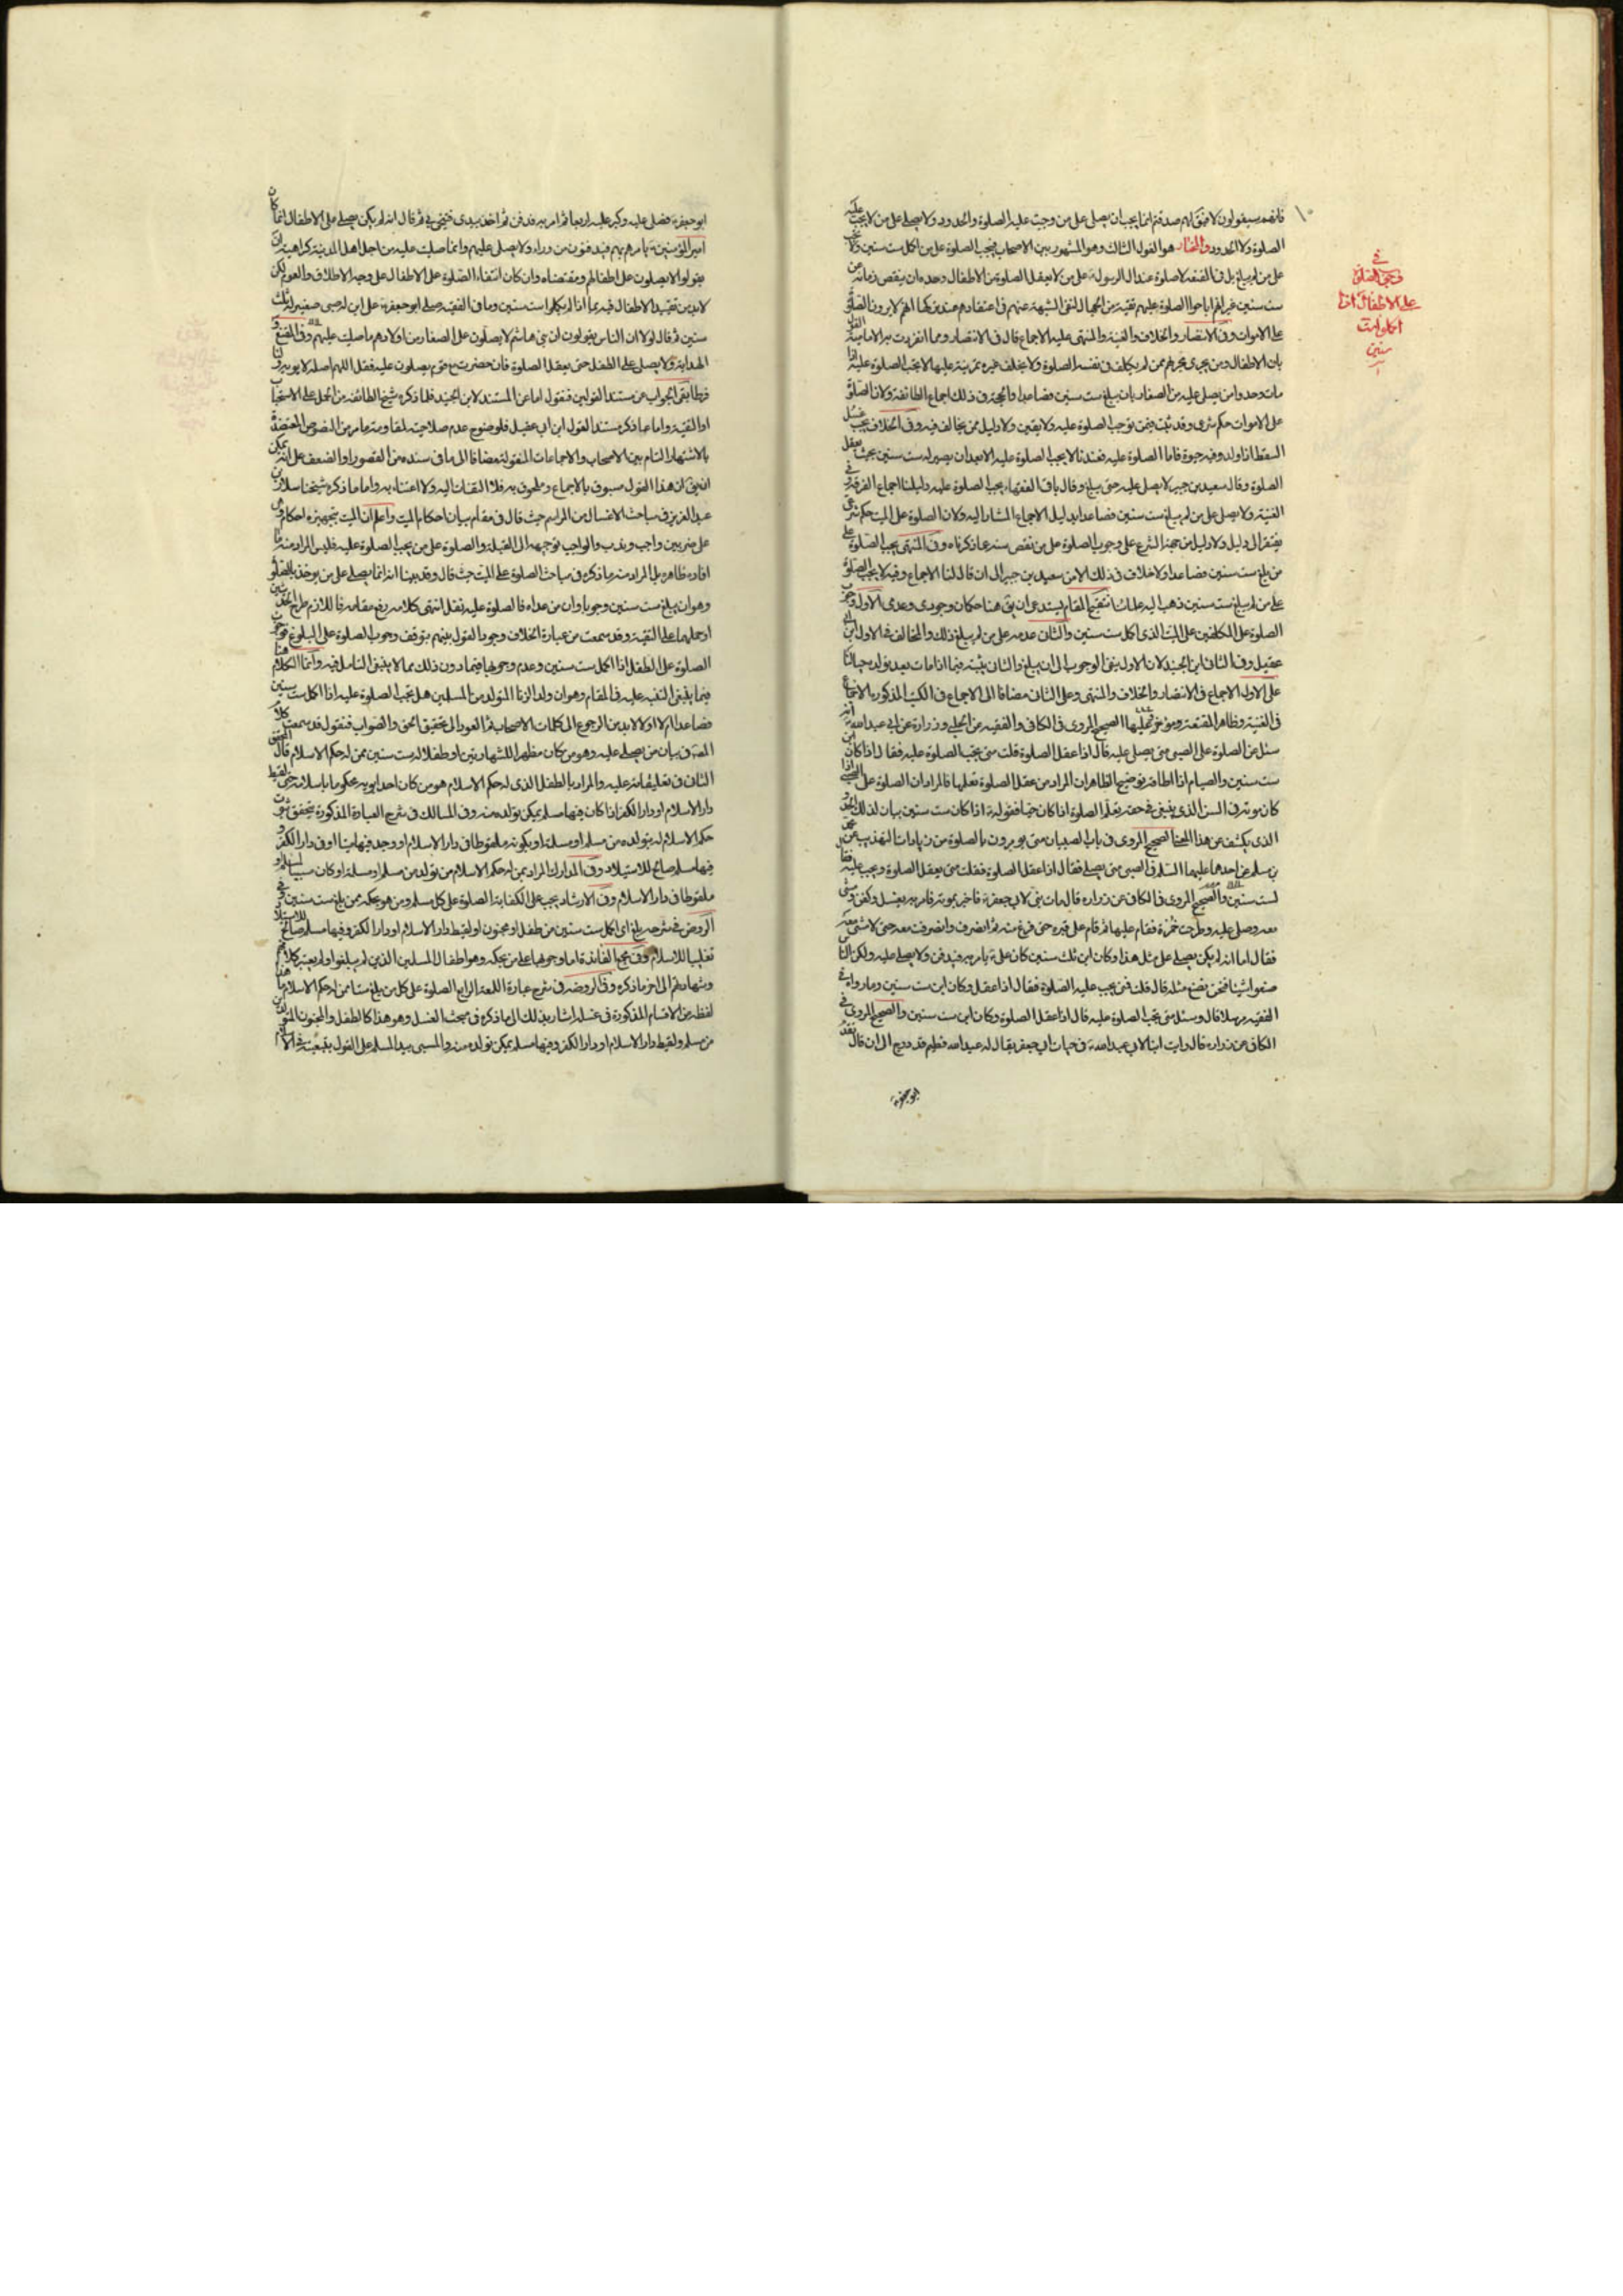 فانه سيقولون لا فيق لهم صدقتم انما يجب ان يصلى على من وجبت عليه الصلوة والحدود ولا يصلى على من لا يجب عليه
الصلوة ولا الحدود والمختار هو القول الثالث وهو المشهور بين الاصحاب فيجب الصلوة على من اكمل ست سنين ولا تجب
على من لم يبلغ بل في المقنعة لا صلوة عند ال الرسول ع على من لا يعقل الصلوة من الاطفال وحده ان ينقص زمانه عن
ست سنين غير انهم اباحوا الصلوة عليهم تقية من الجهال لنفى الشبهة عنهم في اعتقادهم عند تركها انهم لا يرون الصلوة
على الاموات وفى الانتصار والخلاف والغنية والمنتهى عليه الاجماع قال في الانتصار ومما انفردت به الامامية القول
بان الاطفال ومن جرى مجراهم ممن لم يكلف في نفسه الصلوة ولا يكلف غيره تمرينه عليها لا يجب الصلوة عليه اذا
مات وحدوا من يصلى عليه من الصغار بان يبلغ ست سنين فصاعدا والحجة في ذلك اجماع الطائفة ولان الصلوة
على الاموات حكم شرعى وقد ثبت فيمن توجب الصلوة عليه ولا يقين ولا دليل ممن يخالف فيه وفى الخلاف يجب غسل
السقط اذا ولد وفيه حيوة فاما الصلوة عليه فعندنا لا يجب الصلوة عليه الا بعد ان يصير له ست سنين بحيث يعقل
الصلوة وقال سعيد بن جبير لا يصلى عليه حتى يبلغ وقال باقى الفقهاء يجب الصلوة عليه دليلنا اجماع الفرقة وفى
الغنية ولا يصلى على من لم يبلغ ست سنين فصاعدا بدليل الاجماع المشار اليه ولان الصلوة على الميت حكم شرعى
يفتقر الى دليل ولا دليل من جهة الشرع على وجوب الصلوة على من نقص سنه عما ذكرناه وفى المنتهى يجب الصلوة على
من بلغ ست سنين فصاعدا ولا خلاف في ذلك الا من سعيد بن جبير الى ان قال لنا الاجماع وفيه لا يجب الصلوة
على من لم يبلغ ست سنين ذهب اليه علمائنا تنقيح المقام يستدعى ان يق هنا حكمان وجودى وعدمى الاول وجوب
الصلوة على المكلفين على الميت الذى اكمل ست سنين والثانى عدمه على من لم يبلغ ذلك والمخالف في الاول ابن ابى
عقيل وفى الثانى ابن الجنيد لان الاول ينفى الوجوب الى ان يبلغ والثانى يثبته فيما اذا مات بعد تولده حيا لنا
على الاول الاجماع في الانتصار والخلاف والمنتهى وعلى الثانى مضافا الى الاجماع في الكتب المذكورة الاجماع
في الغنية وظاهر المقنعة ومؤخر تحليلها الصحيح المروى في الكافى والفقيه عن الحلبى وزرارة عن ابى عبد الله ع انه
سئل عن الصلوة على الصبى متى يصلى عليه قال اذا عقل الصلوة قلت متى يجب الصلوة عليه فقال اذا كان ابن
ست سنين والصيام اذا اطاقه توضيح الظاهر ان المراد من عقل الصلوة تعلمها فالمراد ان الصلوة على الصبى اذا
كان موته في السن الذى ينبغى في حقه تعلم الصلوة اذا كان حيا فقوله ع اذا كان ست سنين بيان لذلك الحد و
الذى يكشف عن هذا المعنى الصحيح المروى في باب الصبيان متى يؤمرون بالصلوة من زيادات التهذيب عن محمد
بن مسلم عن احدهما عليهما السلم في الصبى متى يصلى فقال اذا عقل الصلوة فقلت متى يعقل الصلوة ويجب عليه فقال
لست سنين والصحيح المروى في الكافى عن زرارة قال مات بنى لابى جعفر ع فاخبر بموته فامر به يغسل وكفن ومشى
معه وصلى عليه وطرحت خمرة فقام عليها ثم قام على قبره حتى فرغ منه ثم انصرف وانصرفت معه حتى لامشى معه
فقال اما انه لم يكن يصلى على مثل هذا وكان ابن ثلث سنين كان على ع يامر به فيدفن ولا يصلى عليه ولكن الناس
صنعوا شيئا فنحن نصنع مثله قال قلت فمتى يجب عليه الصلوة فقال اذا عقل وكان ابن ست سنين وما رواه في
الفقيه مرسلا قال وسئل متى يجب الصلوة عليه قال اذا عقل الصلوة وكان ابن ست سنين والصحيح المروى في
الكافى عن زرارة قال رايت ابنا لابى عبد الله ع في حيات ابى جعفر يقال له عبد الله فطيم قد درج الى ان قال
ابو جعفر ع
في
وجوب الصلوة
على الاطفال اذا
اكملوا ست
سنين
ابو جعفر ع فصلى عليه وكبر عليه اربعا ثم امر به فدفن ثم اخذ بيدى فتنحى بى ثم قال انه لم يكن يصلى على الاطفال انما كان
امير المؤمنين ع يامر بهم فيدفنون من وراء ولا يصلى عليهم وانما صليت عليه من اجل اهل المدينة كراهية ان
يقولوا لا يصلون على اطفالهم ومقتضاه وان كان انتفاء الصلوة على الاطفال على وجه الاطلاق والعموم لكن
لابد من تقييد الاطفال فيه بما اذا لم يكملوا ست سنين وما في الفقيه صلى ابو جعفر ع على ابن له صبى صغير له ثلث
سنين ثم قال لولا ان الناس يقولون ان بنى هاشم لا يصلون على الصغار من اولادهم ما صليت عليهم وفى المقنع و
الهداية ولا يصلى على الطفل حتى يعقل الصلوة فان حضرت مع قوم يصلون عليه فقل اللهم اجعله لابويه ولنا
فرطا بقى الجواب عن مستند القولين فنقول اما عن المستند لابن الجنيد فلما ذكره شيخ الطائفة من الحمل على الاستحباب
او التقية واما عما ذكر مستندا لقول ابن ابى عقيل فلوضوح عدم صلاحيته لمقاومة ما مر من النصوص المعتضدة
بالاشتهار التام بين الاصحاب والاجماعات المنقولة مضافا الى ما في سنده من القصور او الضعف على انه يمكن
ان يق ان هذا القول مسبوق بالاجماع وملحوق به فلا التفات اليه ولا اعتناء به واما ما ذكره شيخنا سلار بن
عبد العزيز في مباحث الاغسال من المراسم حيث قال في مقام بيان احكام الميت واعلم ان الميت تجهيزه احكام وهى
على ضربين واجب وندب والواجب توجيهه الى القبلة والصلوة على من يجب الصلوة عليه فليس المراد منه ما
افاده ظاهره بل المراد منه ما ذكره في مباحث الصلوة على الميت حيث قال وقد بينا انه انما يصلى على من يؤخذ بالصلوة
وهو ان يبلغ ست سنين وجوبا وان من عداه فالصلوة عليه نفل انتهى كلامه رفع مقامه فاللازم طرح الحديثين
او حملهما على التقية وقد سمعت من عبارة الخلاف وجود القول بينهم بتوقف وجوب الصلوة على البلوغ فوجوب
الصلوة على الطفل اذا اكمل ست سنين وعدم وجوبها فيما دون ذلك مما لا ينبغى التامل فيه وانما الكلام هنا
فيما ينبغى التنبيه عليه في المقام وهو ان ولد الزنا المتولد من المسلمين هل تجب الصلوة عليه اذا اكمل ست سنين
فصاعدا ام لا اولا لابد من الرجوع الى كلمات الاصحاب ثم العود الى تحقيق الحق والصواب فنقول قد سمعت كلام
المصنف في بيان من يصلى عليه وهو من كان مظهرا للشهادتين او طفلا له ست سنين ممن له حكم الاسلام قال المحقق
الثانى في تعليقاته عليه والمراد بالطفل الذى له حكم الاسلام هو من كان احد ابويه محكوما باسلامه حتى لقيط
دار الاسلام او دار الكفر اذا كان فيها مسلم يمكن تولده منه وفى المسالك في شرح العبارة المذكورة يتحقق ثبوت
حكم الاسلام له بتولده من مسلم او مسلمة او بكونه ملقوطا في دار الاسلام او وجد فيها ميتا او في دار الكفر و
فيها مسلم صالح للاستيلاد وفى المدارك المراد بمن له حكم الاسلام من تولد من مسلم او مسلمة او كان مسبيا لمسلم او
ملقوطا في دار الاسلام وفى الارشاد يجب على الكفاية الصلوة على كل مسلم ومن هو بحكمه ممن بلغ ست سنين في
الروض في شرحه بلغ اى اكمل ست سنين من طفل او مجنون او لقيط دار الاسلام او دار الكفر وفيها مسلم صالح للاستيلاد
تغليبا للاسلام وفى مجمع الفائدة اما وجوبها على من بحكمه وهو اطفال المسلمين الذين لم يبلغوا ولم يعتبر كلامهم
وشهادتهم الى اخر ما ذكره وفى الروضة في شرح عبارة اللمعة الرابع الصلوة على كل من بلغ ستا ممن له حكم الاسلام هذا
لفظه من الاقسام المذكورة في غسله اشار بذلك الى ما ذكره في مبحث الغسل وهو هذا كالطفل والمجنون المتولدين
من مسلم ولقيط دار الاسلام او دار الكفر وفيها مسلم يمكن تولده منه والمسبى بيد المسلم على القول بتبعيته في الاسلام